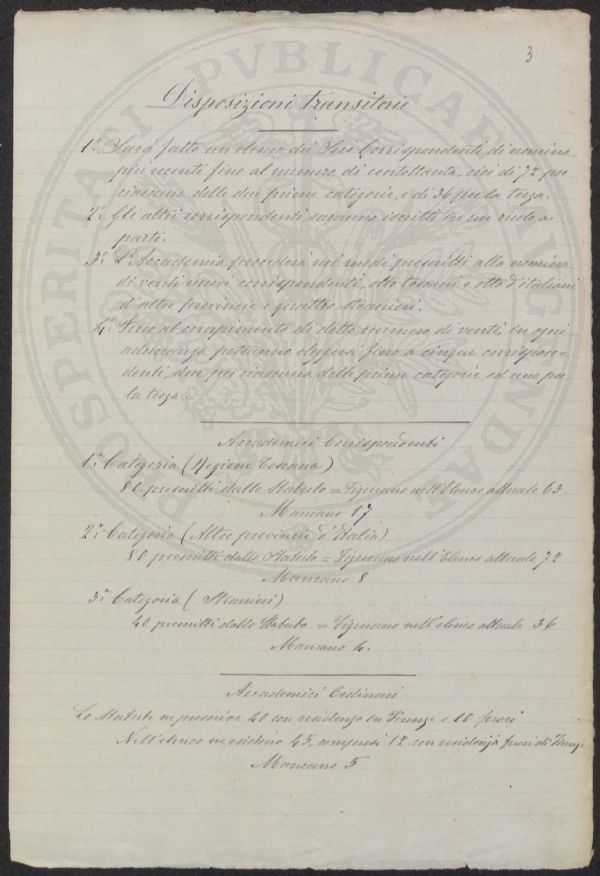 3
Disposizioni transitorie
1.° Sarà fatto un elenco dei Soci Corrispondenti di nomina
più recente fino al numero di centottanta, cioè di 72 per
ciascuna delle due prime categorie, e di 36 per la terza.
2.° Gli altri corrispondenti saranno iscritti in un ruolo a
parte.
3.° L'Accademia procederà nei modi prescritti alla nomina
di venti nuovi corrispondenti, otto toscani e otto d'italiani
d'altre provincie e quattro stranieri.
4.° Fino al compimento di detto numero di venti, in ogni
adunanza potranno eleggersi fino a cinque corrispon-
denti, due per ciascuna delle prime categorie ed uno per
la terza.
Accademici Corrispondenti
1.a Categoria (Regione Toscana)
80 prescritti dallo Statuto = Figurano nell'Elenco attuale 63
Mancano 17
2.a Categoria (Altre provincie d'Italia)
80 prescritti dallo Statuto = Figurano nell'Elenco attuale 72
Mancano 8
3.a Categoria (Stranieri)
40 prescritti dallo Statuto = Figurano nell'elenco attuale 36
Mancano 4.
Accademici Ordinari
Lo Statuto ne prescrive 40 con residenza in Firenze e 10 fuori
Nell'elenco ne esistono 45, compresi 12 con residenza fuori di Firenze
Mancano 5
PROSPERITATI PUBLICAE AUGENDAE